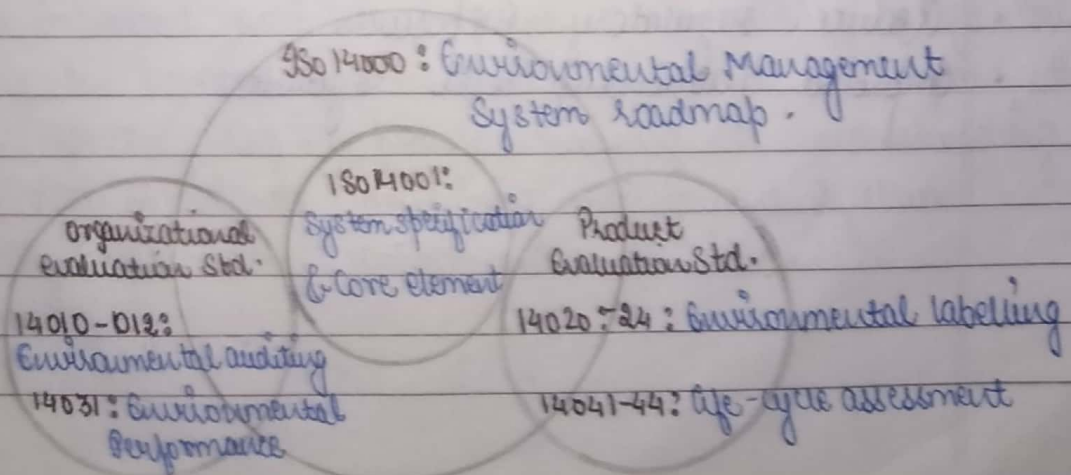 ISO 14000: Environmental Management
System roadmap.
ISO 14001:
System specification
& Core element
Organizational
evaluation Std.
Product
Evaluation Std.
14010-012:
Environmental auditing
14031: Environmental
Performance
14020-24: Environmental labelling
14041-44: life-cycle assessment